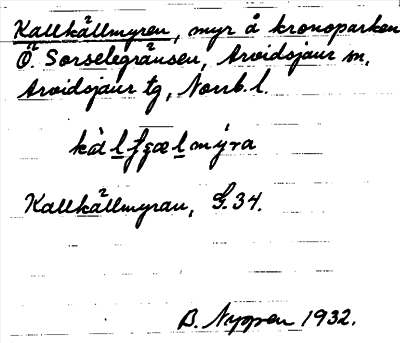 Kallkällmyren, myr å kronoparken
Ö. Sorselegränsen, Arvidsjaur sn,
Arvidsjaur tg, Norrb. l.
Kallkällmyran, G. 34.
B. Nyppen 1932.